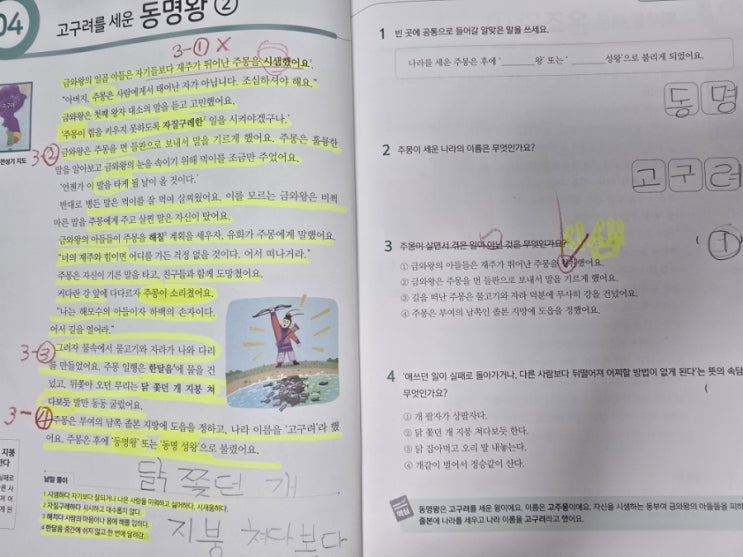 04
고구려를 세운 동명왕 ②
3-① X
금와왕의 일곱 아들은 자기들보다 재주가 뛰어난 주몽을 시샘했어요.
"아버지, 주몽은 사람에게서 태어난 자가 아닙니다. 조심하셔야 해요."
금와왕은 첫째 왕자 대소의 말을 듣고 고민했어요.
'주몽이 힘을 키우지 못하도록 자질구레한 일을 시켜야겠구나.'
3-②
금와왕은 주몽을 먼 들판으로 보내서 말을 기르게 했어요. 주몽은 훌륭한
말을 알아보고 금와왕의 눈을 속이기 위해 먹이를 조금만 주었어요.
'언젠가 이 말을 타게 될 날이 올 것이다.'
반대로 병든 말은 먹이를 잘 먹여 살찌웠어요. 이를 모르는 금와왕은 비쩍
마른 말을 주몽에게 주고 살찐 말은 자신이 탔어요.
금와왕의 아들들이 주몽을 해칠 계획을 세우자, 유화가 주몽에게 말했어요.
"너의 재주와 힘이면 어디를 가든 걱정 없을 것이다. 어서 떠나거라."
주몽은 자신이 기른 말을 타고, 친구들과 함께 도망쳤어요.
커다란 강 앞에 다다르자 주몽이 소리쳤어요.
"나는 해모수의 아들이자 하백의 손자이다.
어서 길을 열어라."
3-③
그러자 물속에서 물고기와 자라가 나와 다리
를 만들었어요. 주몽 일행은 한달음에 물을 건
넜고, 뒤쫓아 오던 무리는 닭 쫓던 개 지붕 쳐
다보듯 발만 동동 굴렀어요.
3-④
주몽은 부여의 남쪽 졸본 지방에 도읍을 정하고, 나라 이름을 '고구려'라 했
어요. 주몽은 후에 '동명왕' 또는 '동명 성왕'으로 불렸어요.
닭 쫓던 개
지붕 쳐다본다
낱말 풀이
1 시샘하다 자기보다 잘되거나 나은 사람을 미워하고 싫어하다. 시새움하다.
2 자질구레하다 시시하고 대수롭지 않다.
3 해치다 사람의 마음이나 몸에 해를 입히다.
4 한달음 중간에 쉬지 않고 한 번에 달려감.
고구려
전성기 지도
1 빈 곳에 공통으로 들어갈 알맞은 말을 쓰세요.
나라를 세운 주몽은 후에 '________왕' 또는 '________성왕'으로 불리게 되었어요.
동 명
2 주몽이 세운 나라의 이름은 무엇인가요?
고 구 려
3 주몽이 살면서 겪은 일이 아닌 것을 무엇인가요?
①
① 금와왕의 아들들은 재주가 뛰어난 주몽을
② 금와왕은 주몽을 먼 들판으로 보내서 말을 기르게 했어요.
③ 길을 떠난 주몽은 물고기와 자라 덕분에 무사히 강을 건넜어요.
④ 주몽은 부여의 남쪽인 졸본 지방에 도읍을 정했어요.
4 '애쓰던 일이 실패로 돌아가거나, 다른 사람보다 뒤떨어져 어찌할 방법이 없게 된다'는 뜻의 속담
무엇인가요? (
① 개 팔자가 상팔자다.
② 닭 쫓던 개 지붕 쳐다보듯 한다.
③ 닭 잡아먹고 오리 발 내놓는다.
④ 개같이 벌어서 정승같이 산다.
동명왕은 고구려를 세운 왕이에요. 이름은 고주몽이에요. 자신을 시샘하는 동부여 금와왕의 아들들을 피하
졸본에 나라를 세우고 나라 이름을 고구려라고 했어요.